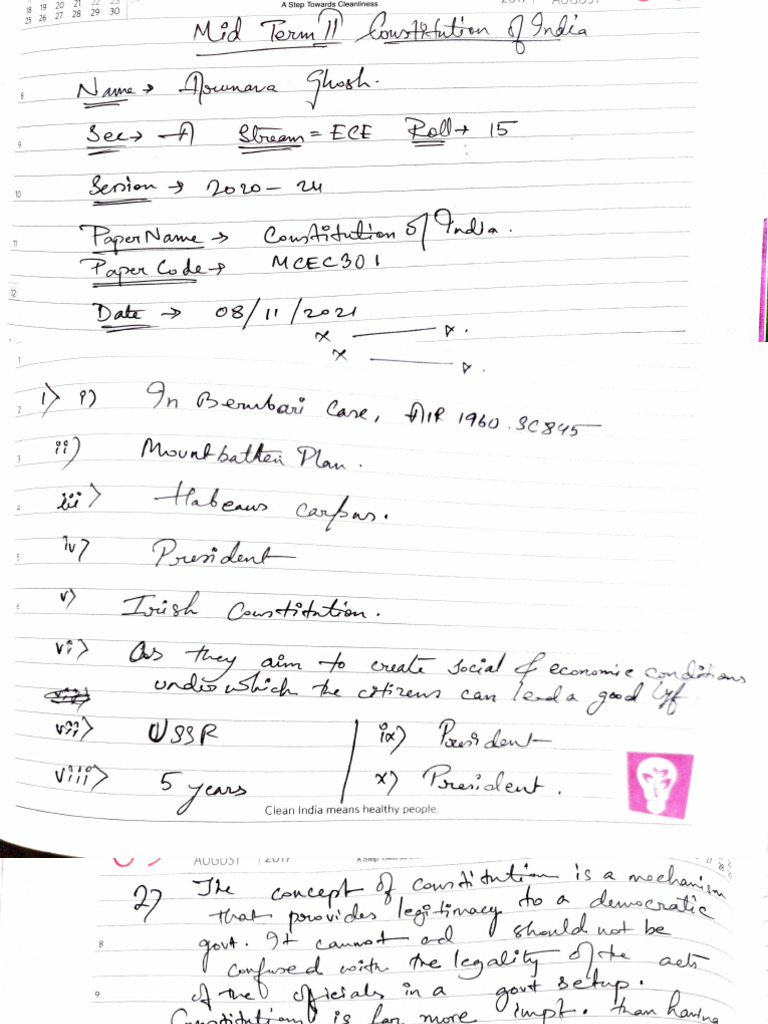 18 19 20 21 22 23
25 26 27 28 29 30
A Step Towards Cleanliness
2017 AUGUST
Mid Term II Constitution of India
8 Name → Arunava Ghosh.
9 Sec → A Stream = ECE Roll → 15
10 Session → 2020 - 24
11 Paper Name → Constitution of India.
Paper Code → MCEC301
12
Date → 08/11/2021
x
1 x
2 1) i) In Berubari Case, AIR 1960 SC 845
3 ii) Mountbatten Plan.
4 iii) Habeaus carpus.
5 iv) President
6 v) Irish Constitution.
vi) As they aim to create social & economic conditions
under which the citizens can lead a good lyf
vii) USSR ix) President
viii) 5 years x) President.
Clean India means healthy people.
AUGUST 2017
2) The concept of constitution is a mechanism
that provides legitimacy to a democratic
8 govt. It cannot ad should not be
confused with the legality of the acts
9 of the officials in a govt setup.
is far more impt. than having